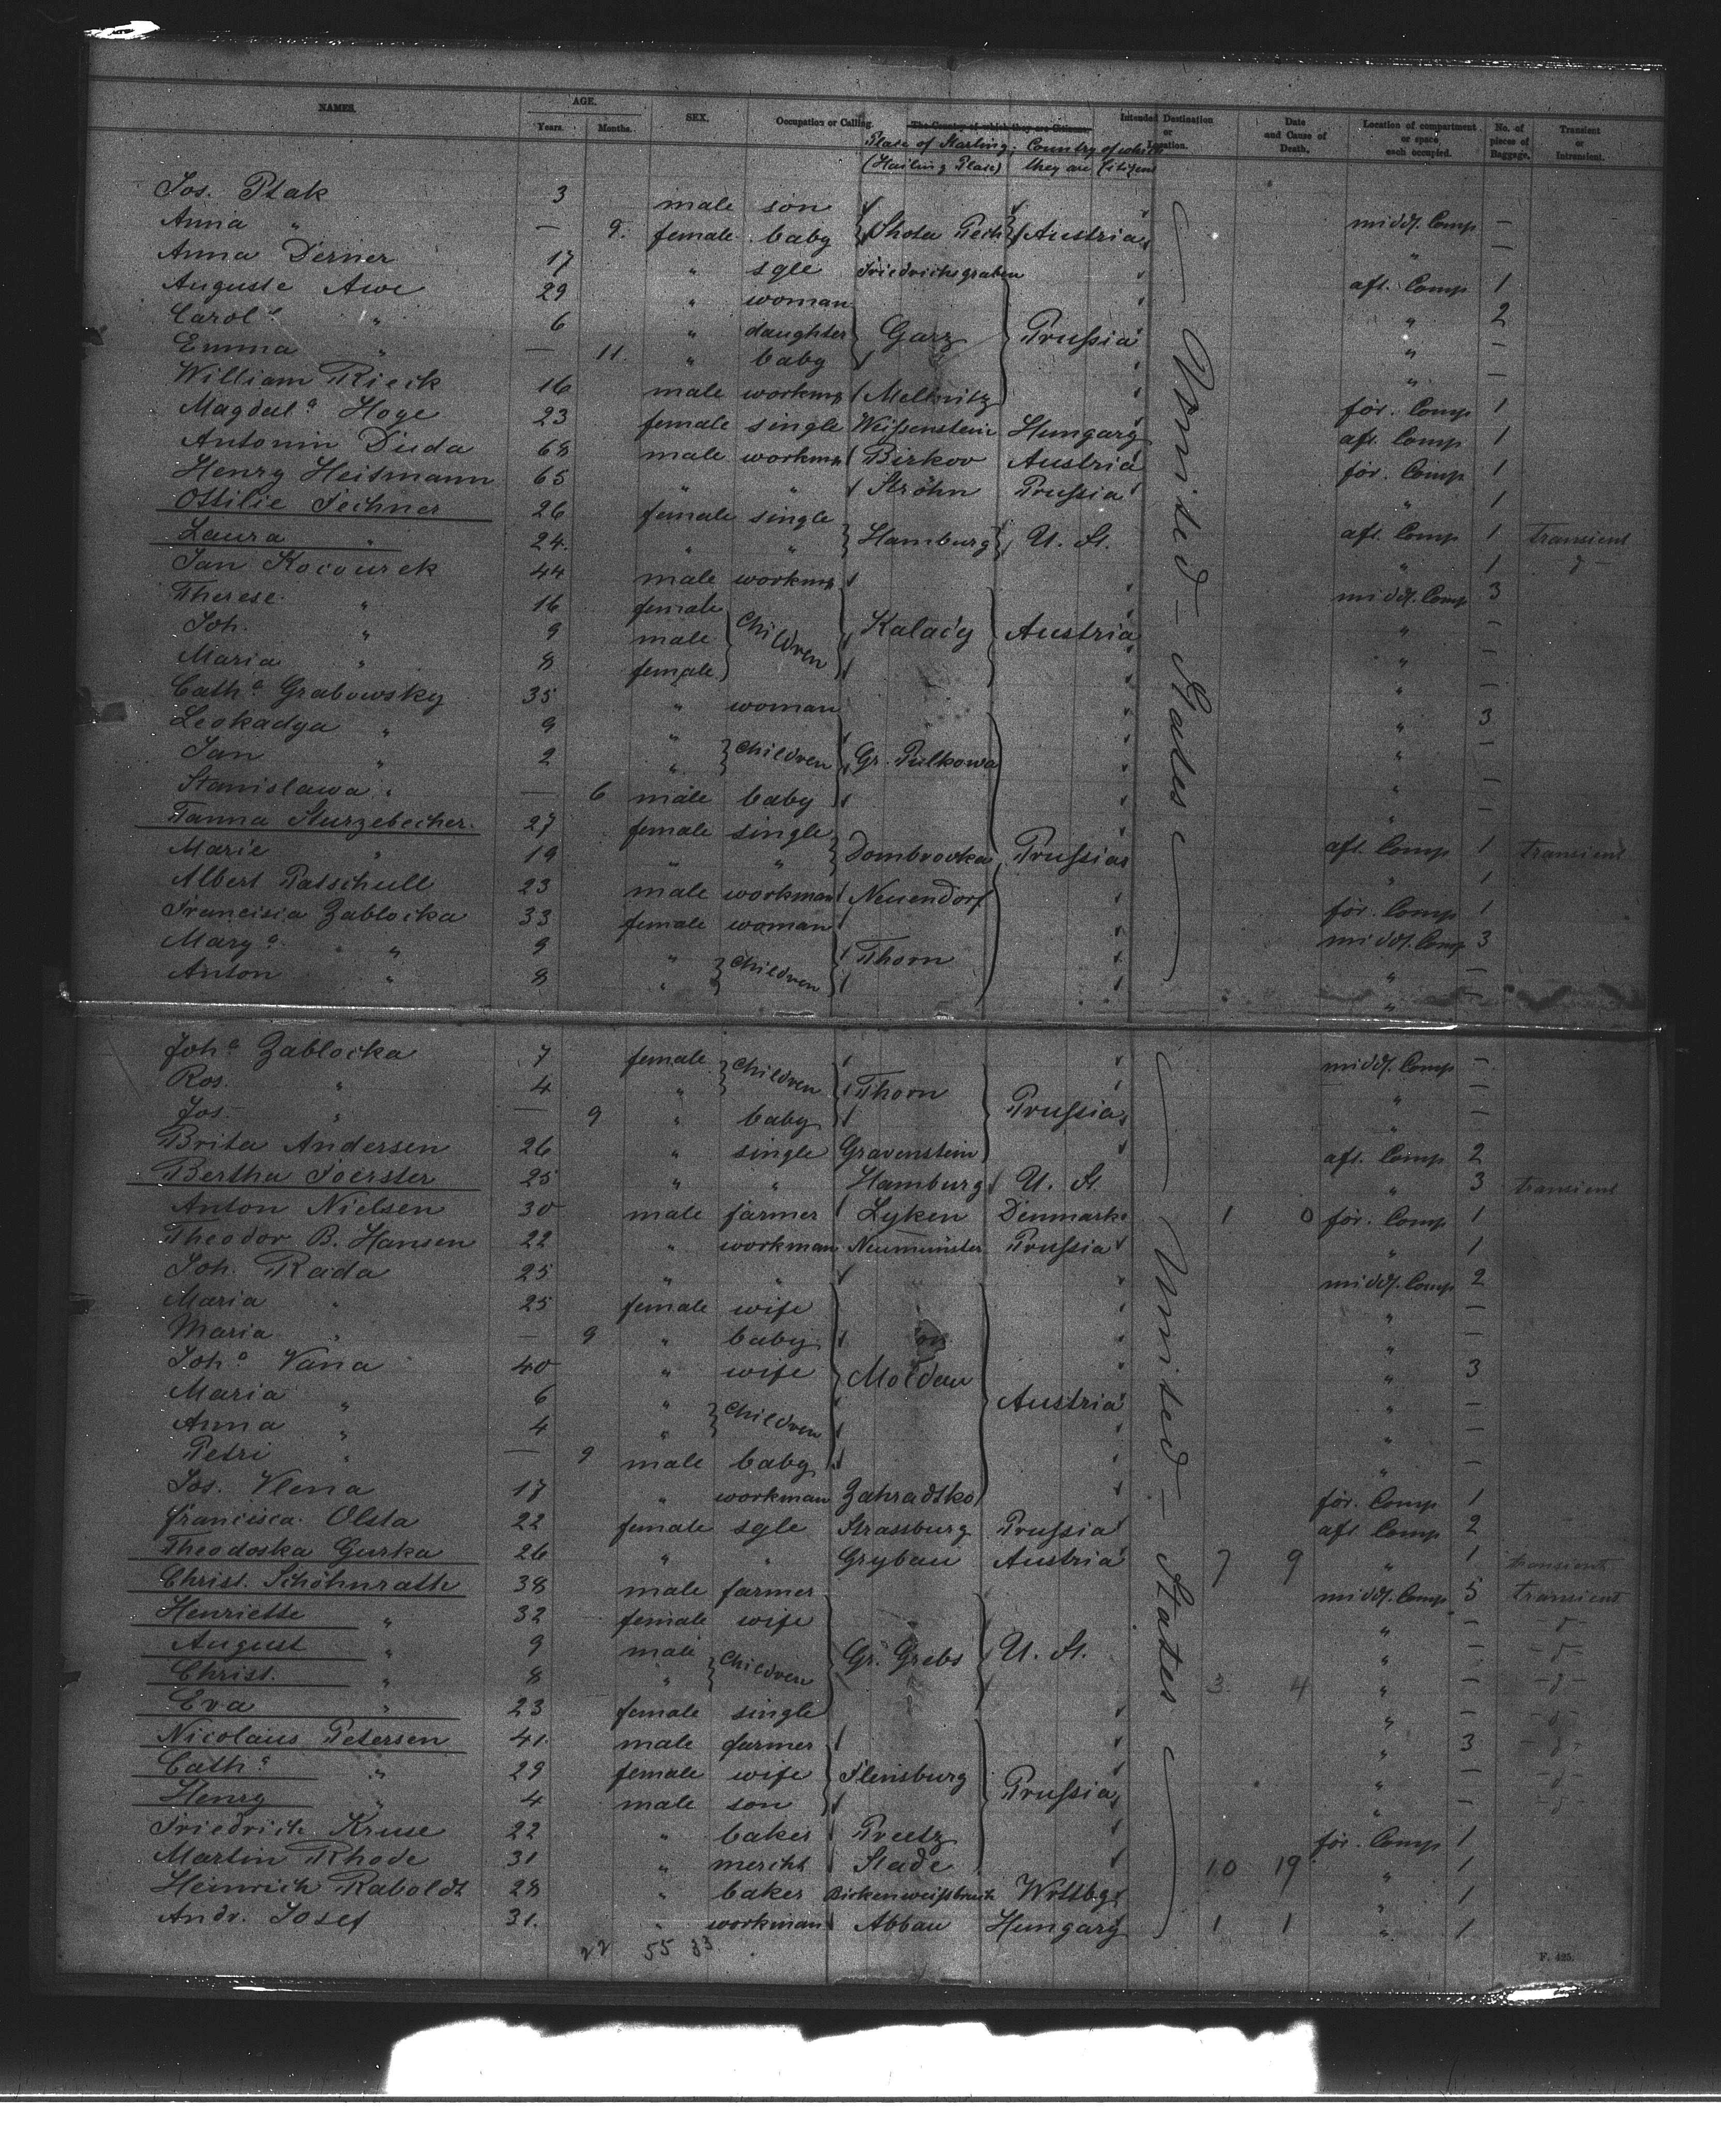 NAMES. AGE. SEX. Occupation or Calling. The Country of which they are Citizens. Intended Destination or Location. Date and Cause of Death. Location of compartment or space each occupied. No. of pieces of Baggage. Transient or Intransient.
Years. Months. Place of Starting. (Hailing Place) Country of which they are Citizens
Jos. Ptak 3 male son middl. Comp —
Anna " — 9. female baby Shota Pech Austria " —
Anna Derner 17 " sgle Friedrichsgraben aft. Comp 1
Auguste Awe 29 " woman " 2
Carol.e " 6 " daughter Garz Prussia " —
Emma " — 11. " baby " —
William Rieck 16 male workmn Mellnitz för. Comp 1
Magdal.a Hoge 23 female single Weissenstein Hungary aft. Comp 1
Antonin Duda 68 male workmn Birkov Austria för. Comp 1
Henry Heitmann 65 " " Ströhn Prussia " 1
Ottilie Fechner 26 female single aft. Comp 1 transient
Laura " 24. " " Hamburg U. St. " 1 - d -
Jan Kocourek 44 male workmn middl. Comp 3
Therese " 16 female " —
Joh. " 9 male Children Kalady Austria " —
Maria " 8 female " —
Cath.a Grabowsky 35 " woman " 3
Leokadya " 9 " " —
Jan " 2 " Children Gr. Pulkowa " —
Stanislawa " — 6 male baby " —
Tanna Sturzebecher 27 female single aft. Comp 1 transient
Marie " 19 " " Dombrovka Prussia " 1
Albert Patschull 23 male workman Neuendorf för. Comp 1
Francisia Zablocka 33 female woman middl. Comp 3
Mary a. " 9 " Thorn " —
Anton " 8 " Children " —
United - States
Joh.a Zablocka 7 female middl. Comp —
Ros. " 4 " Children Thorn " —
Jos. " — 9 " baby Prussia " —
Brita Andersen 26 " single Gravenstein aft. Comp 2
Bertha Foerster 25 " " Hamburg U. St. " 3 transient
Anton Nielsen 30 male farmer Lyken Denmark 1 0 för. Comp 1
Theodor B. Hansen 22 " workman Neumünster Prussia " 1
Joh. Rada 25 " " middl. Comp 2
Maria " 25 female wife " —
Maria " — 9 " baby " —
Joh.a Vana 40 " wife Moldau " 3
Maria " 6 " Austria " —
Anna " 4 " Children " —
Petri " — 9 male baby " —
Jos. Vlena 17 " workman Zahradtko för. Comp 1
Francisca Olsta 22 female sgle Strassburg Prussia aft. Comp 2
Theodoska Gurka 26 " " Grybau Austria 7 9 " 1 transient
Christ. Schöhnrath 38 male farmer middl. Comp 5 transient
Henriette " 32 female wife " — - d -
August " 9 male Gr. Grebs U. St. " — - d -
Christ. " 8 " Children 3. 4 " — - d -
Eva " 23 female single " — - d -
Nicolaus Petersen 41. male farmer " 3 - d -
Cath.a " 29 female wife Flensburg " — - d -
Henry " 4 male son Prussia " — - d -
Friedrich Kruse 22 " baker Preetz för. Comp 1
Martin Rhode 31 " mercht Stade 10 19 " 1
Heinrich Raboldt 28 " baker Birkenweissbuch Wrttbg " 1
Andr. Josef 31. " workman Abbau Hungary 1 1 " 1
United - States
22 55 33
F. 425.